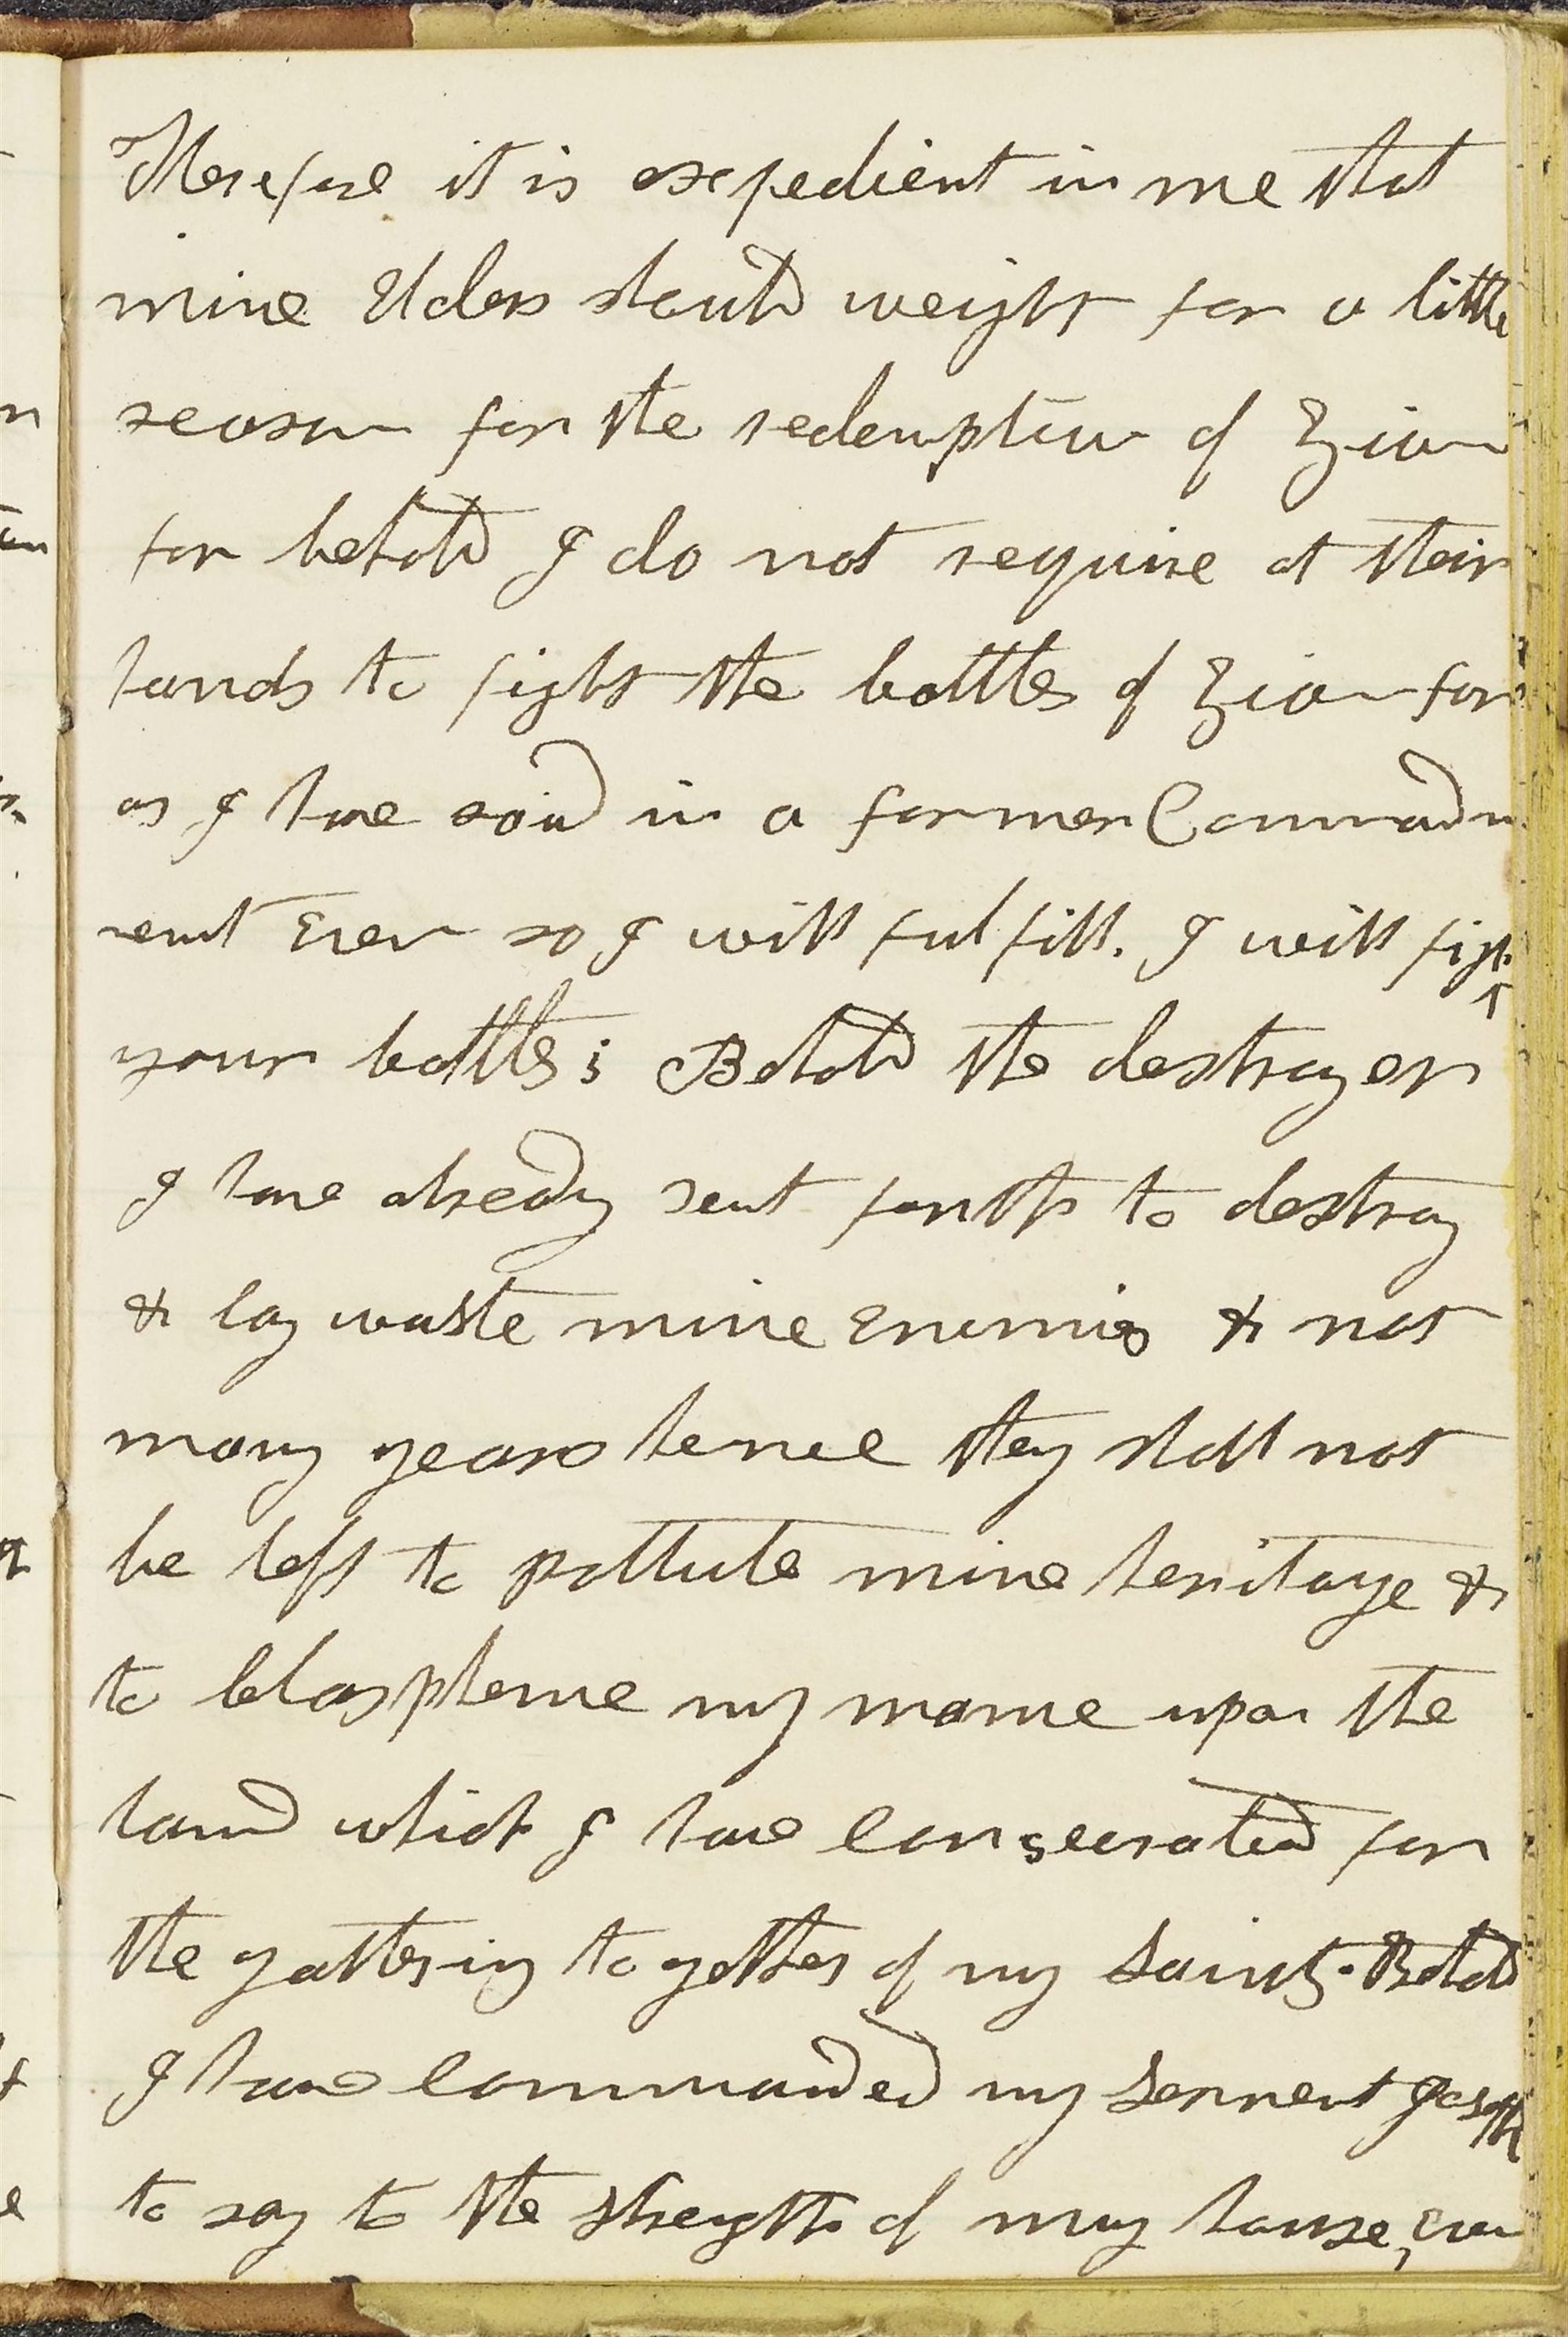 Therefore it is expedient in me that
mine Elders should weight for a little
season for the redemption of Zion
for behold I do not require at their
hands to fight the battles of Zion for
as I have said in a former Commadm
ment Even so I will fulfill. I will figh
your battles; Behold the destroyer
I have already sent forth to destroy
& lay waste mine Enemies & not
many years hence they shall not
be left to pollute mine heritage &
to blaspheme my mame upon the
land which I have consecrated for
the gathering together of my Saints. Behold
I have commanded my Servent Joseph
to say to the strength of my house, Even